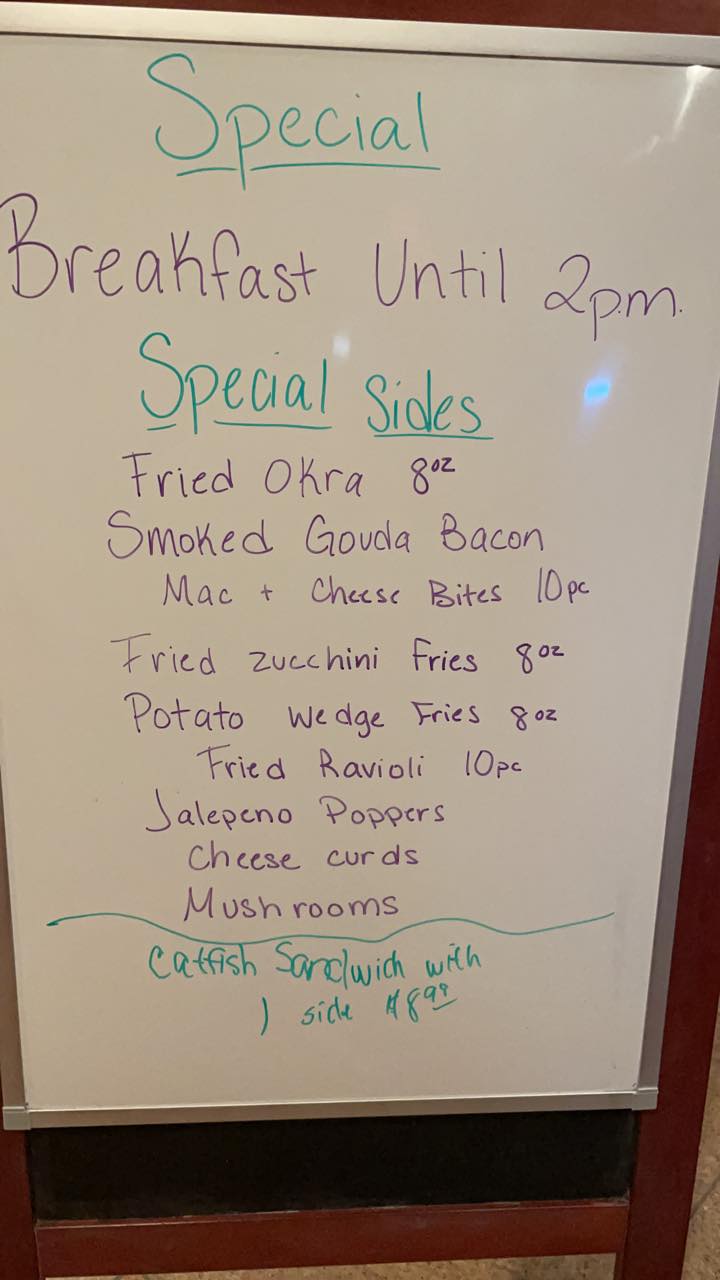 Special
Breakfast Until 2p.m.
Special Sides
Fried Okra 8oz
Smoked Gouda Bacon
Mac + Cheese Bites 10pc
Fried zucchini Fries 8oz
Potato Wedge Fries 8oz
Fried Ravioli 10pc
Jalepeno Poppers
Cheese curds
Mushrooms
Catfish Sandwich with
1 side $8.99